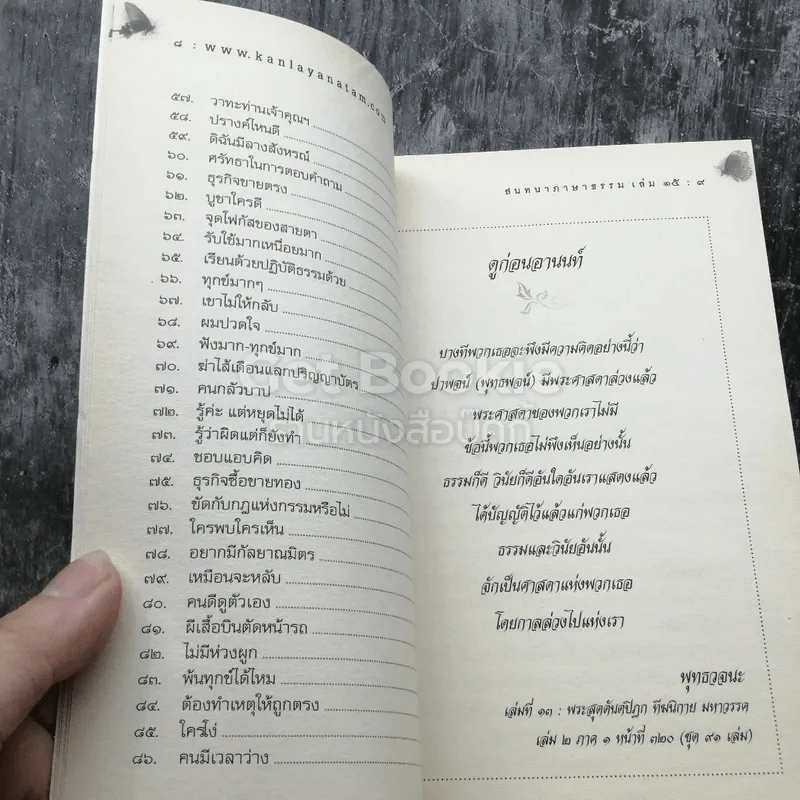 ๘ : www.kanlayanatam.com
๕๗. วาทะท่านเจ้าคุณฯ
๕๘. ปรางค์ไหนดี
๕๙. ดิฉันมีลางสังหรณ์
๖๐. ศรัทธาในการตอบคำถาม
๖๑. ธุรกิจขายตรง
๖๒. บูชาใครดี
๖๓. จุดโฟกัสของสายตา
๖๔. รับใช้มากเหนื่อยมาก
๖๕. เรียนด้วยปฏิบัติธรรมด้วย
๖๖. ทุกข์มากๆ
๖๗. เขาไม่ให้กลับ
๖๘. ผมปวดใจ
๖๙. ฟังมาก-ทุกข์มาก
๗๐. ฆ่าไส้เดือนแลกปริญญาบัตร
๗๑. คนกลัวบาป
๗๒. รู้ค่ะ แต่หยุดไม่ได้
๗๓. รู้ว่าผิดแต่ก็ยังทำ
๗๔. ชอบแอบคิด
๗๕. ธุรกิจซื้อขายทอง
๗๖. ขัดกับกฎแห่งกรรมหรือไม่
๗๗. ใครพบใครเห็น
๗๘. อยากมีกัลยาณมิตร
๗๙. เหมือนจะหลับ
๘๐. คนดีดูตัวเอง
๘๑. ผีเสื้อบินตัดหน้ารถ
๘๒. ไม่มีห่วงผูก
๘๓. พ้นทุกข์ได้ไหม
๘๔. ต้องทำเหตุให้ถูกตรง
๘๕. ใครโง่
๘๖. คนมีเวลาว่าง
สนทนาภาษาธรรม เล่ม ๑๕ : ๙
ดูก่อนอานนท์
บางทีพวกเธอจะพึงมีความคิดอย่างนี้ว่า
ปาพจน์ (พุทธพจน์) มีพระศาสดาล่วงแล้ว
พระศาสดาของพวกเราไม่มี
ข้อนี้พวกเธอไม่พึงเห็นอย่างนั้น
ธรรมก็ดี วินัยก็ดีอันใดอันเราแสดงแล้ว
ได้บัญญัติไว้แล้วแก่พวกเธอ
ธรรมและวินัยอันนั้น
จักเป็นศาสดาแห่งพวกเธอ
โดยกาลล่วงไปแห่งเรา
พุทธวจนะ
เล่มที่ ๑๓ : พระสุตตันตปิฎก ทีฆนิกาย มหาวรรค
เล่ม ๒ ภาค ๑ หน้าที่ ๓๒๐ (ชุด ๙๑ เล่ม)
Get Bookie
ร้านหนังสือบุ๊คกี้